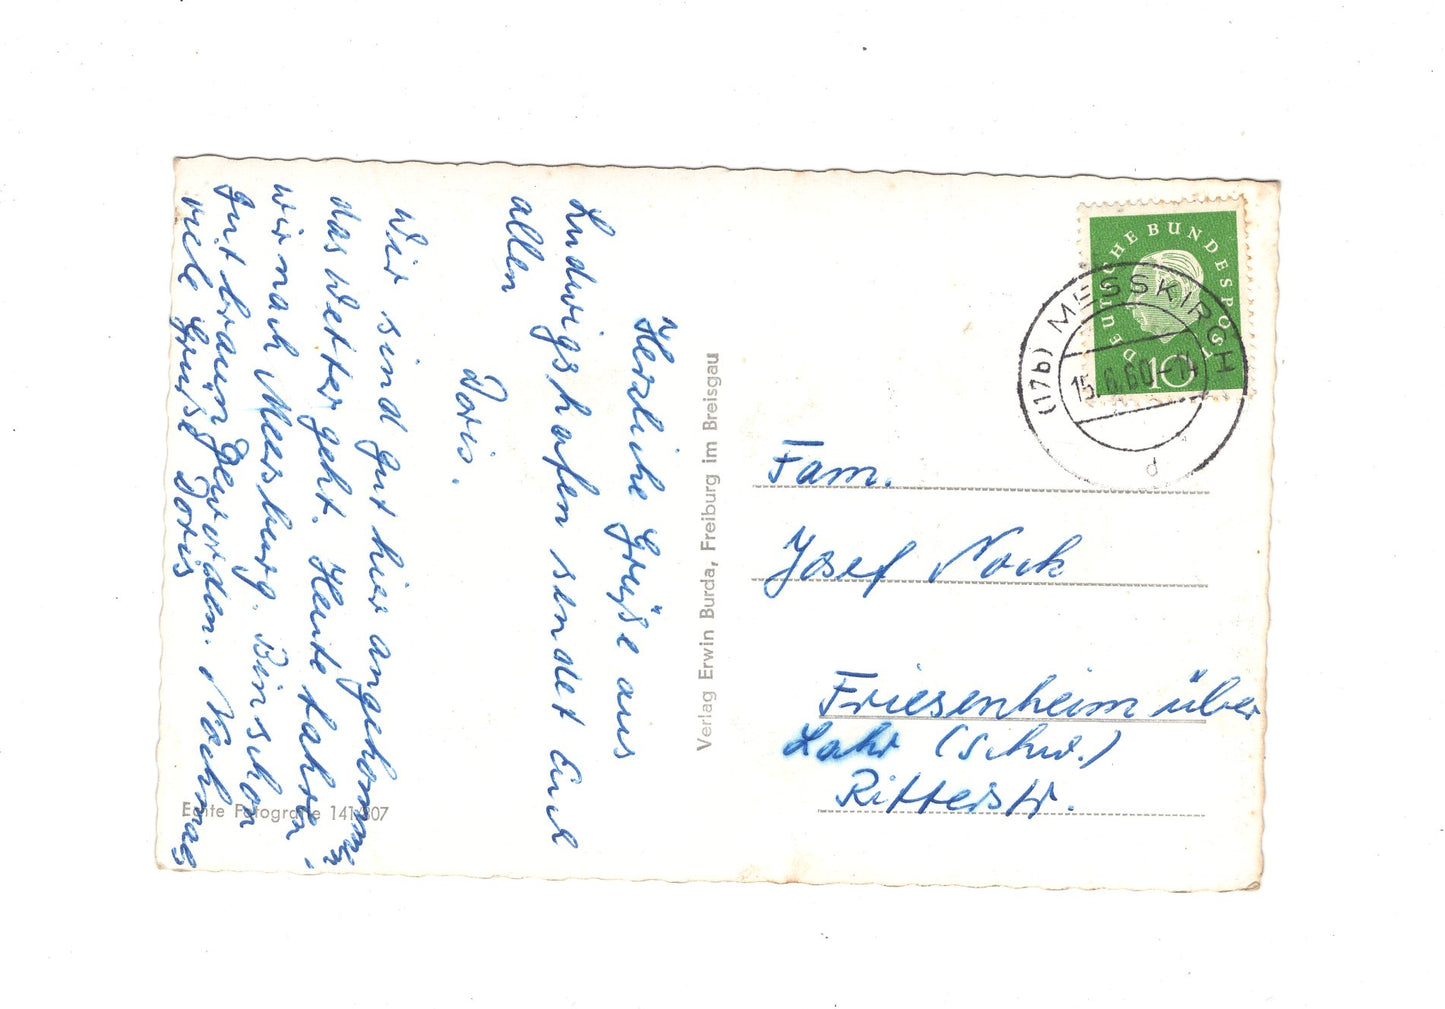 Herzliche Grüße aus
Ludwigshafen sendet Euch
allen
Doris.
Wir sind gut hier angekommen
das Wetter geht. Heute fahren
wir nach Meersburg. Bin schon
gut braun geworden. Nochmals
viele Grüße Doris
Echte Fotografie 141/307
Verlag Erwin Burda, Freiburg im Breisgau
DEUTSCHE BUNDESPOST
10
(17b) MESSKIRCH
15.6.60.-14
d
Fam.
Josef Nock
Friesenheim über
Lahr (Schw.)
Ritterstr.